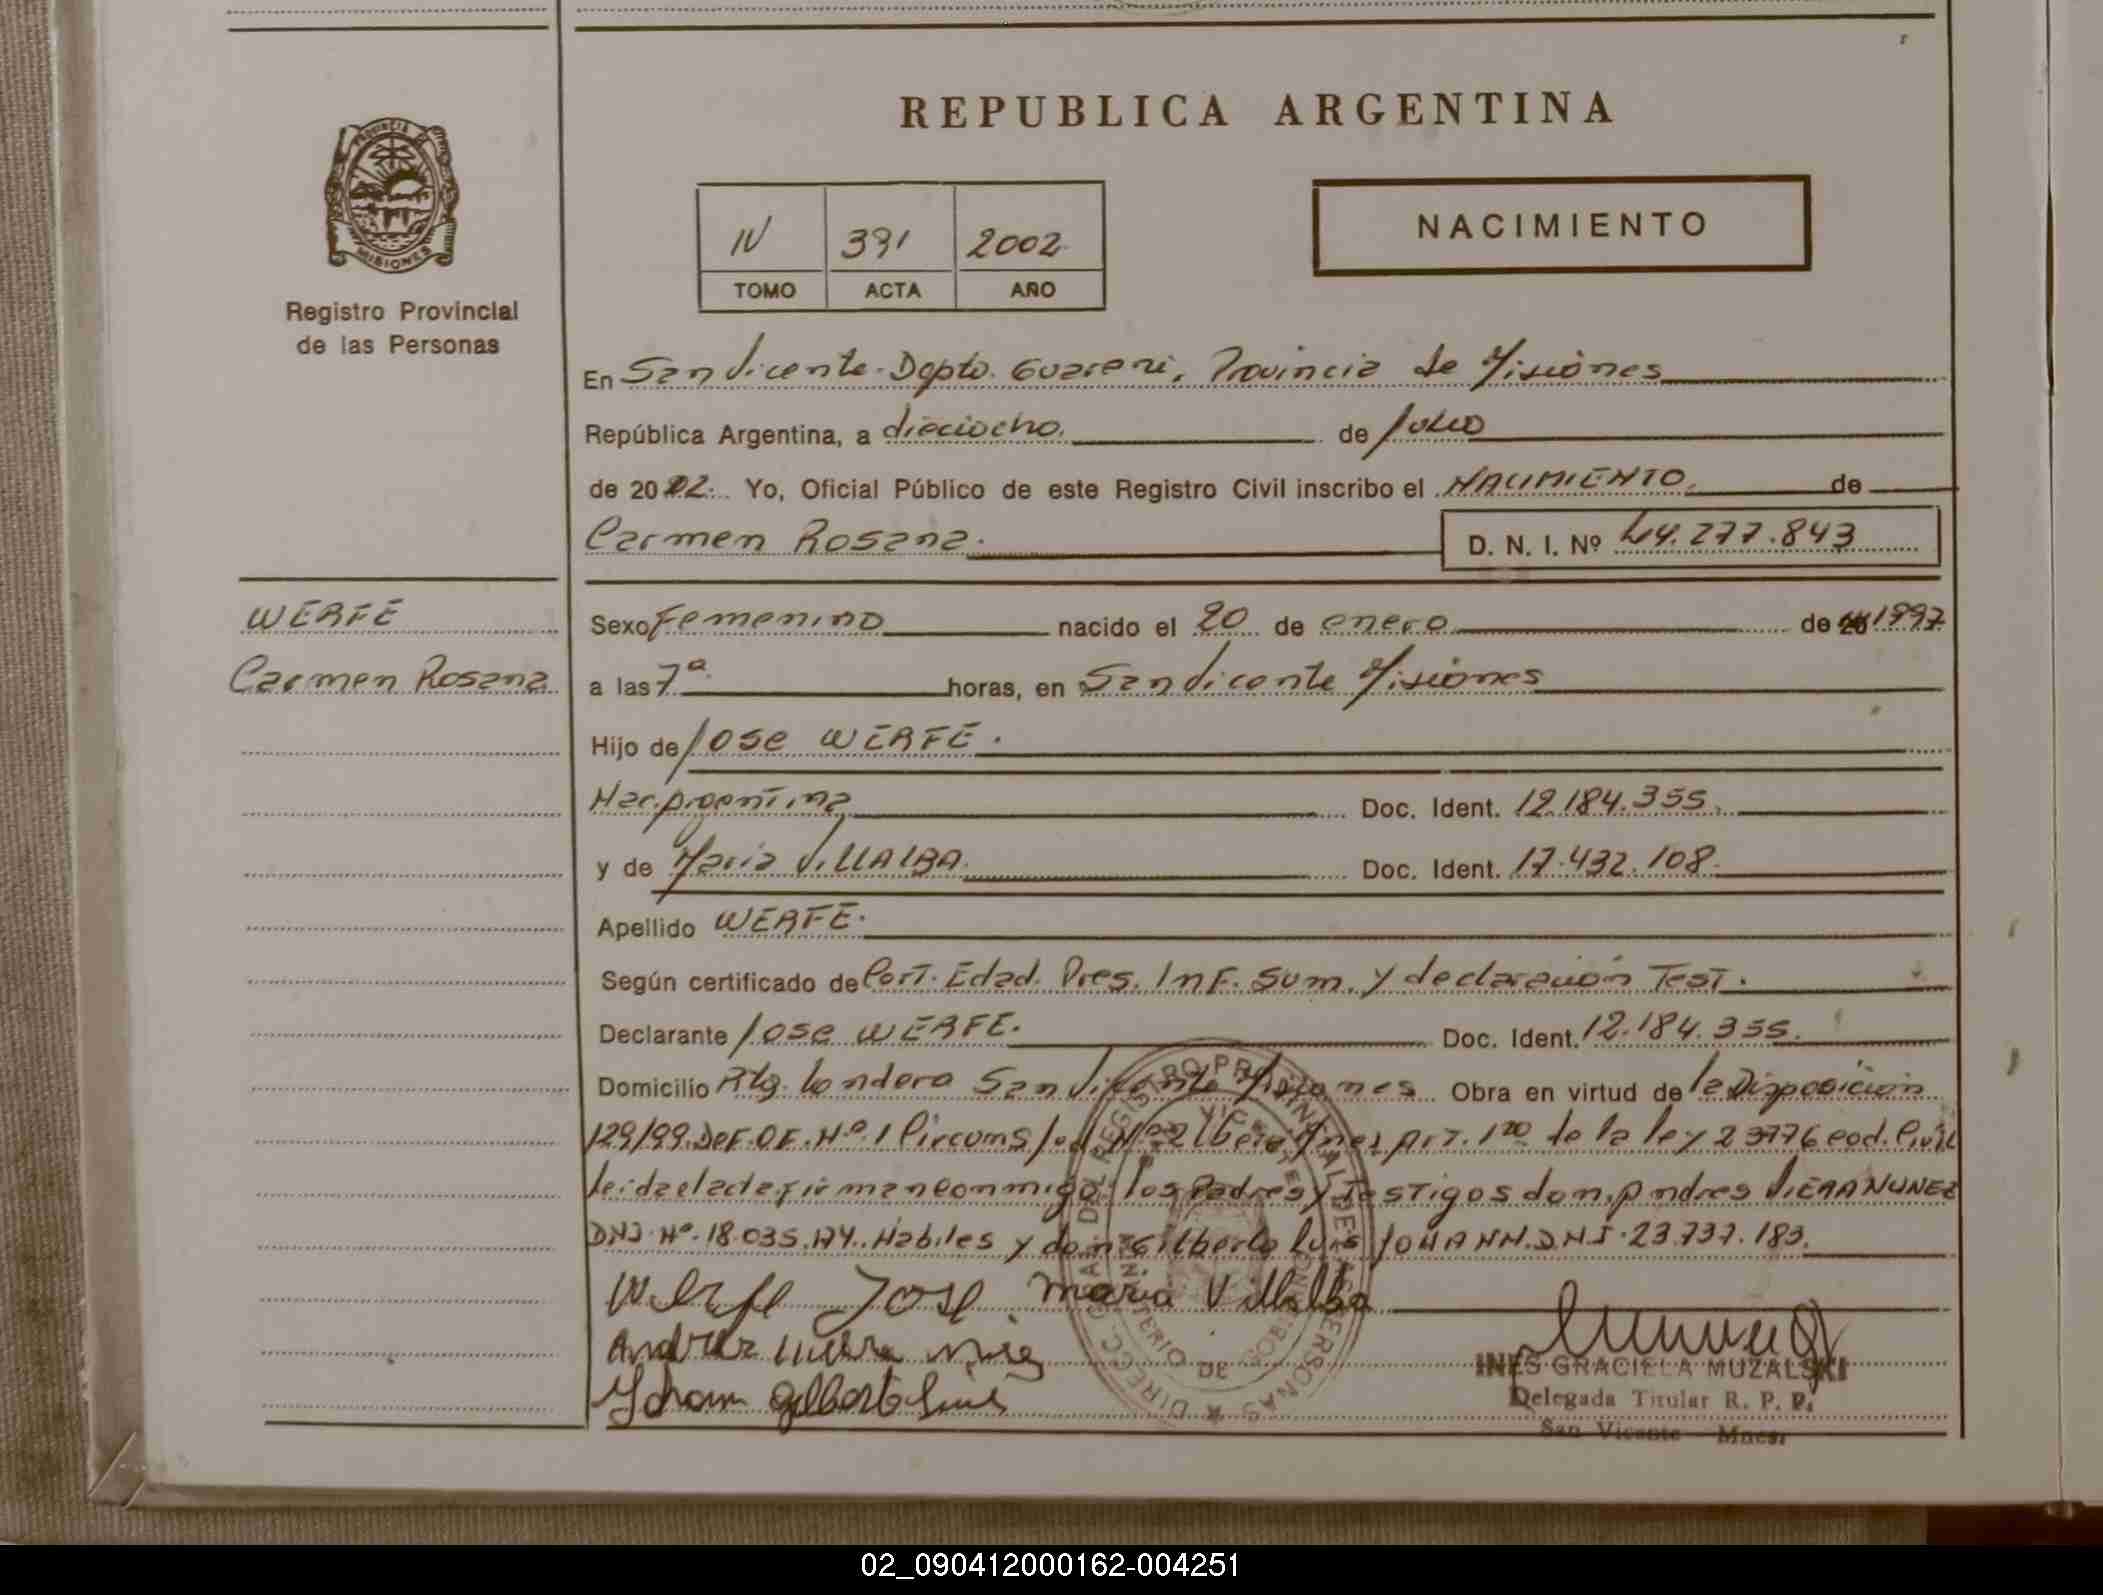 REPUBLICA ARGENTINA
PROVINCIA DE MISIONES
Registro Provincial
de las Personas
NACIMIENTO
IV 391 2002
TOMO ACTA AÑO
En San Vicente Depto. Guarani, Provincia de Misiones
República Argentina, a dieciocho. de Julio
de 2002. Yo, Oficial Público de este Registro Civil inscribo el NACIMIENTO de
Carmen Rosana. D. N. I. Nº 44.277.843
WERFE
Carmen Rosana
Sexo Femenino nacido el 20 de enero de 1997
a las 7ª horas, en San Vicente Misiones
Hijo de Jose WERFE.
Nac. Argentina Doc. Ident. 12.184.355.
y de Maria VILLALBA. Doc. Ident. 17.432.108.
Apellido WERFE.
Según certificado de Cort. Edad. Pres. INF. Sum. y declaración Test.
Declarante Jose WERFE. Doc. Ident. 12.184.355.
Domicilio Londero San Vicente Misiones Obra en virtud de la Disposición
129/99. DEF. OF. Nº 1 Art. 1ro de la ley 23776 cod. Civil
leida el acta firman conmigo los Padres y Testigos don. Andres VIERA NUNEZ
DNI Nº 18.035.174. Habiles y don Gilberto Luis JOHANN. DNI. 23.737.183.
Werfe Jose Maria Villalba
Andres
Johann Gilberto Luis
INES GRACIELA MUZALSKI
Delegada Titular R. P. P.
San Vicente Mnes.
02_090412000162-004251